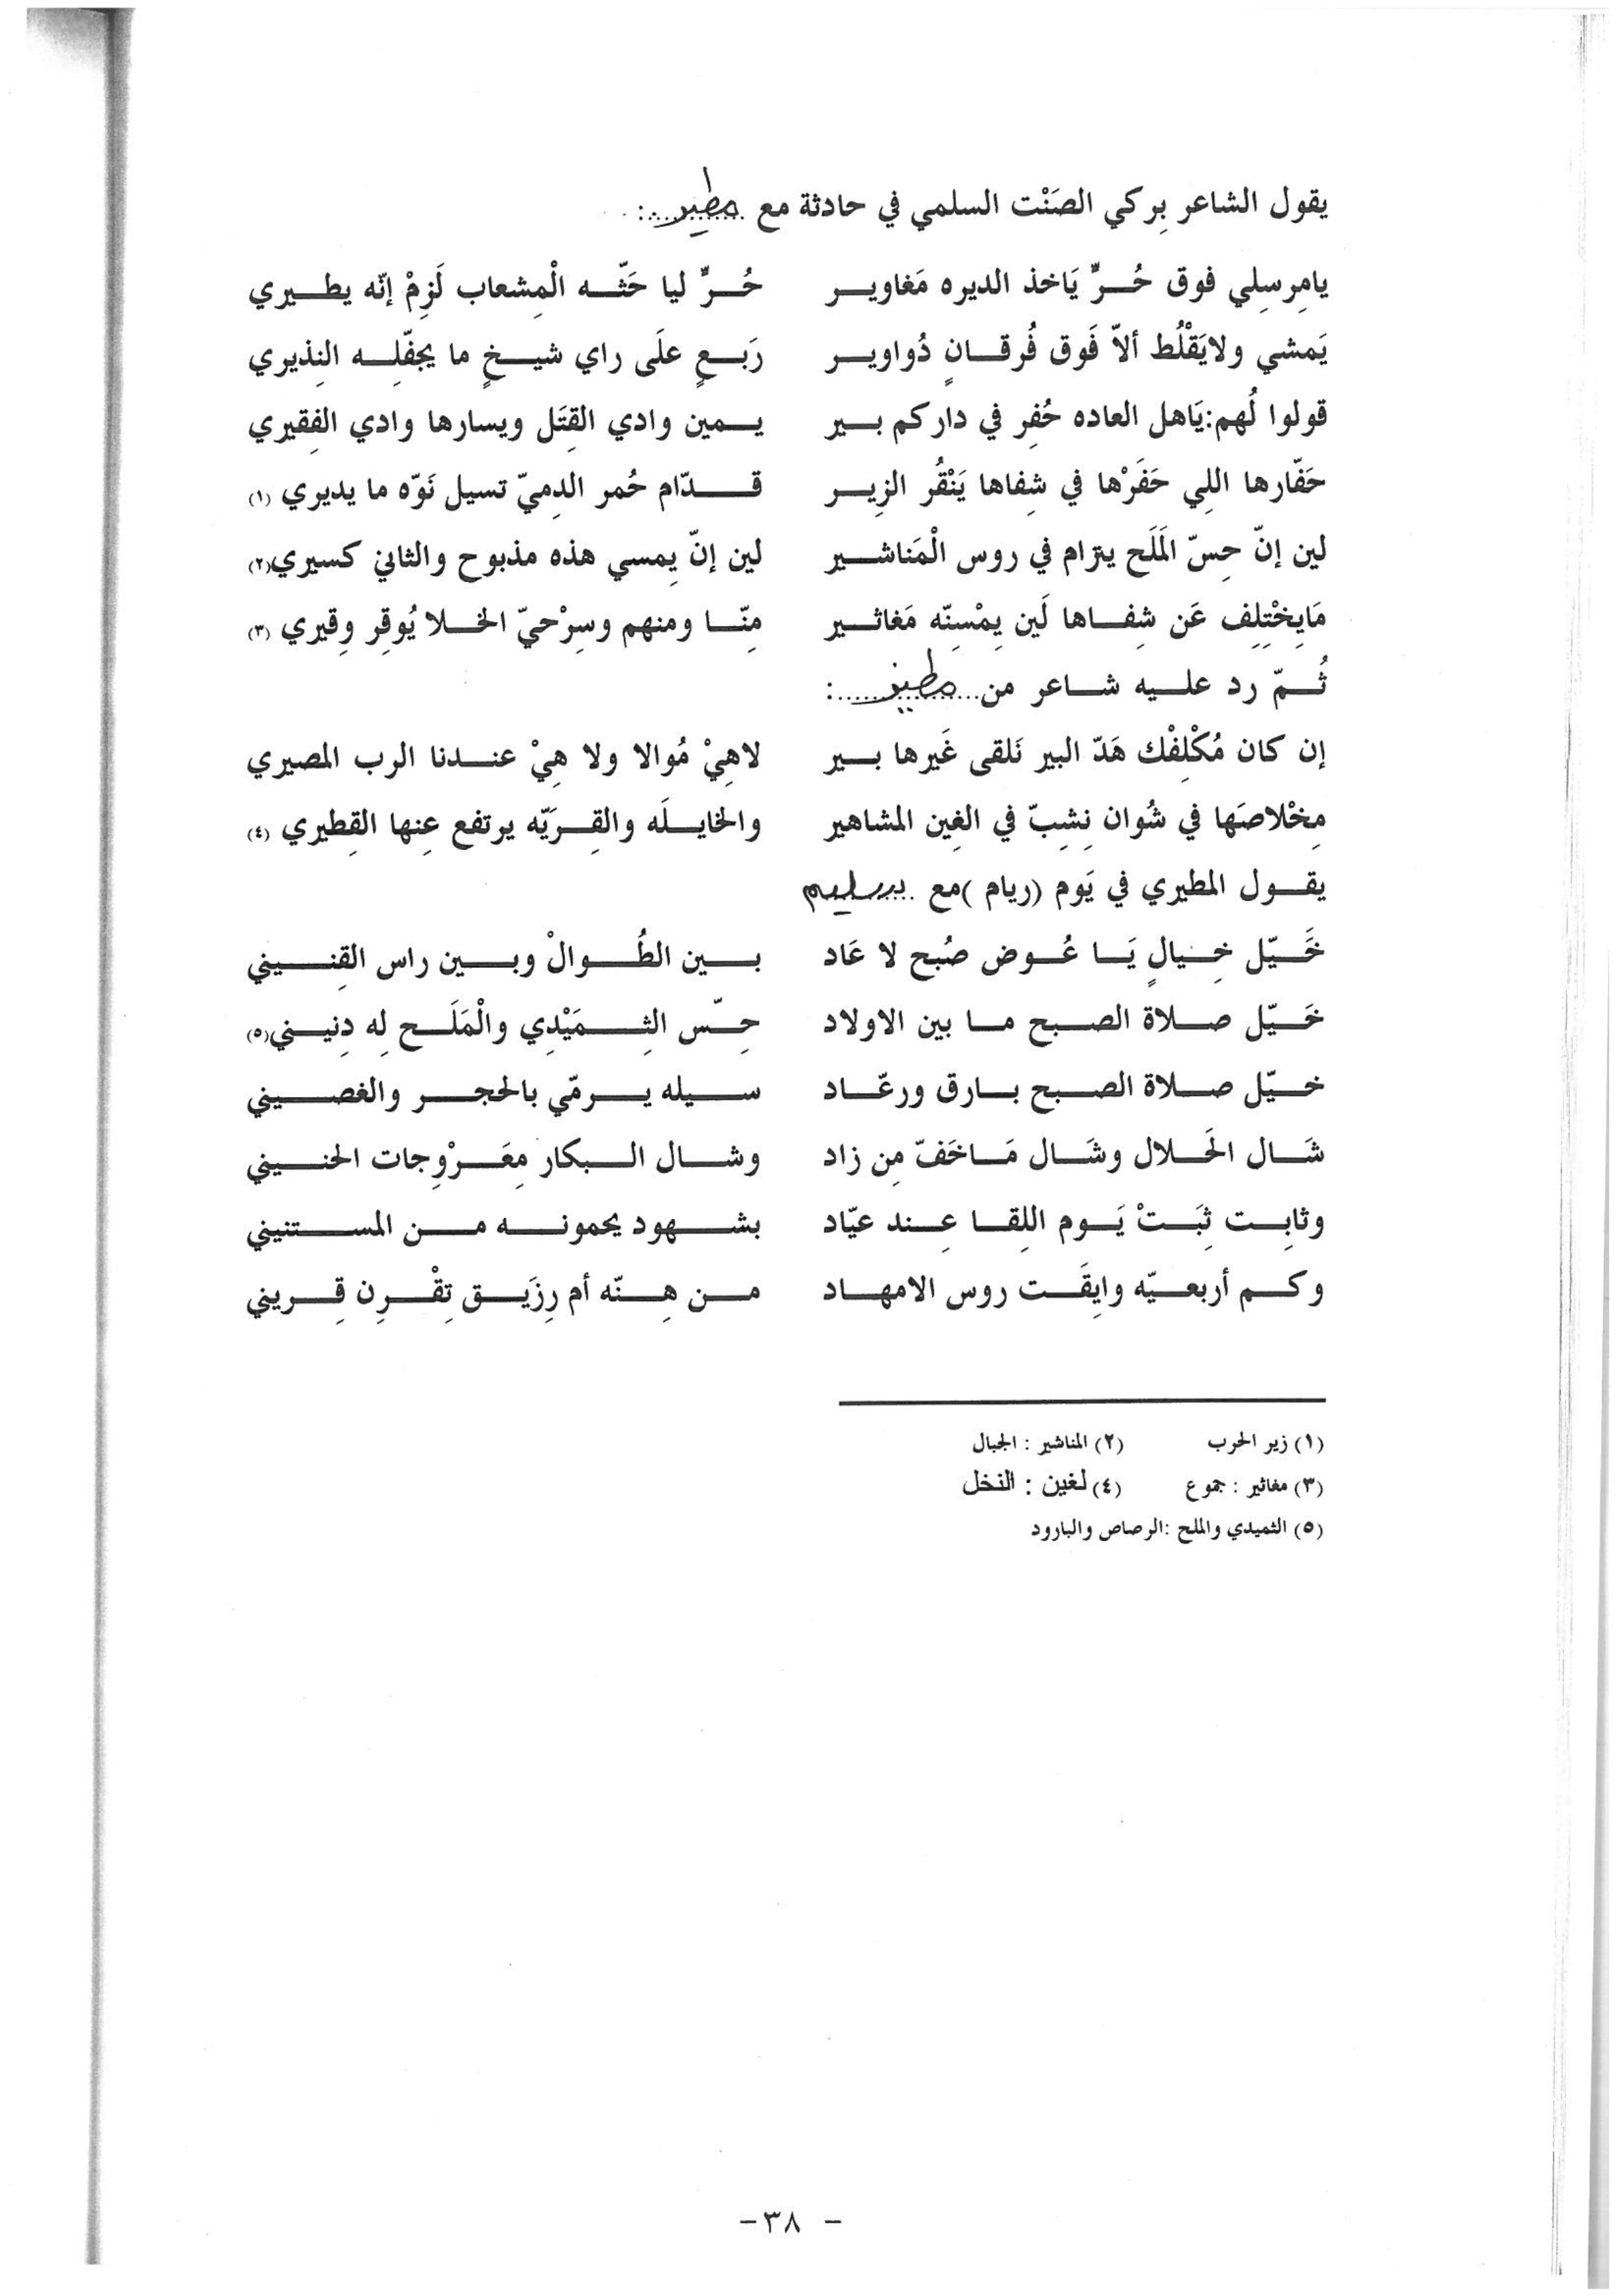 يقول الشاعر بِركي الصَنْت السلمي في حادثة مع مطير:
يامِرسِلي فوق حُرٍّ يَاخذ الديره مَغاوير حُرٍّ ليا حَثّه الْمِشعاب لَزِمْ إنّه يطيري
يَمشي ولايَقْلُط ألاّ فَوق فُرقانٍ دُواوير رَبعٍ علَى راي شيخٍ ما يجفّلِه النِذيري
قولوا لُهم:يَاهل العاده حُفِر في داركم بير يمين وادي القِتَل ويسارها وادي الفِقيري
حَفّارها اللِي حَفَرْها في شِفاها يَنْقُر الزِير قدّام حُمر الدِميّ تسيل نَوّه ما يديري (١)
لين إنّ حِسّ المَلَح يتزام في روس الْمَناشير لين إنّ يِمسي هذه مذبوح والثاني كسيري(٢)
مَايِخْتِلِف عَن شِفاها لَين يِمْسِنّه مَغاثير مِنّا ومنهم وسِرْحيّ الخلا يُوقِر وِقيري (٣)
ثُمّ رد عليه شاعر من مطير:
إن كان مُكْلِفْك هَدّ البير نَلقى غَيرها بير لاهِيْ مُوالا ولا هِيْ عندنا الرب المصيري
مِخْلاصَها في شُوان نِشِبّ في الغِين المشاهير والخايلَه والقِرَيّه يرتفع عِنها القِطيري (٤)
يقول المطيري في يَوم (ريام )مع سليم
خَيّل خِيالٍ يَا عُوض صُبح لا عَاد بين الطُوالْ وبين راس القِنيني
خَيّل صلاة الصبح ما بين الاولاد حِسّ الثِمَيْدِي والْمَلَح لِه دِنيني(٥)
خيّل صلاة الصبح بارق ورعّاد سيله يرمّي بالحجر والغصيني
شَال الحَلال وشَال مَاخَفّ مِن زاد وشال البكار مِعَرْوِجات الحنيني
وثابِت ثِبَتْ يَوم اللِقا عِند عيّاد بشهود يحمونه من المستنيني
وكم أربعيّه وايِقَت روس الامهاد من هِنّه أم رِزَيق تِقْرِن قِريني
(١) زير الحرب (٢) المناشير : الجبال
(٣) مغاثير : جموع (٤) لغين : النخل
(٥) الثميدي والملح :الرصاص والبارود
- ٣٨-